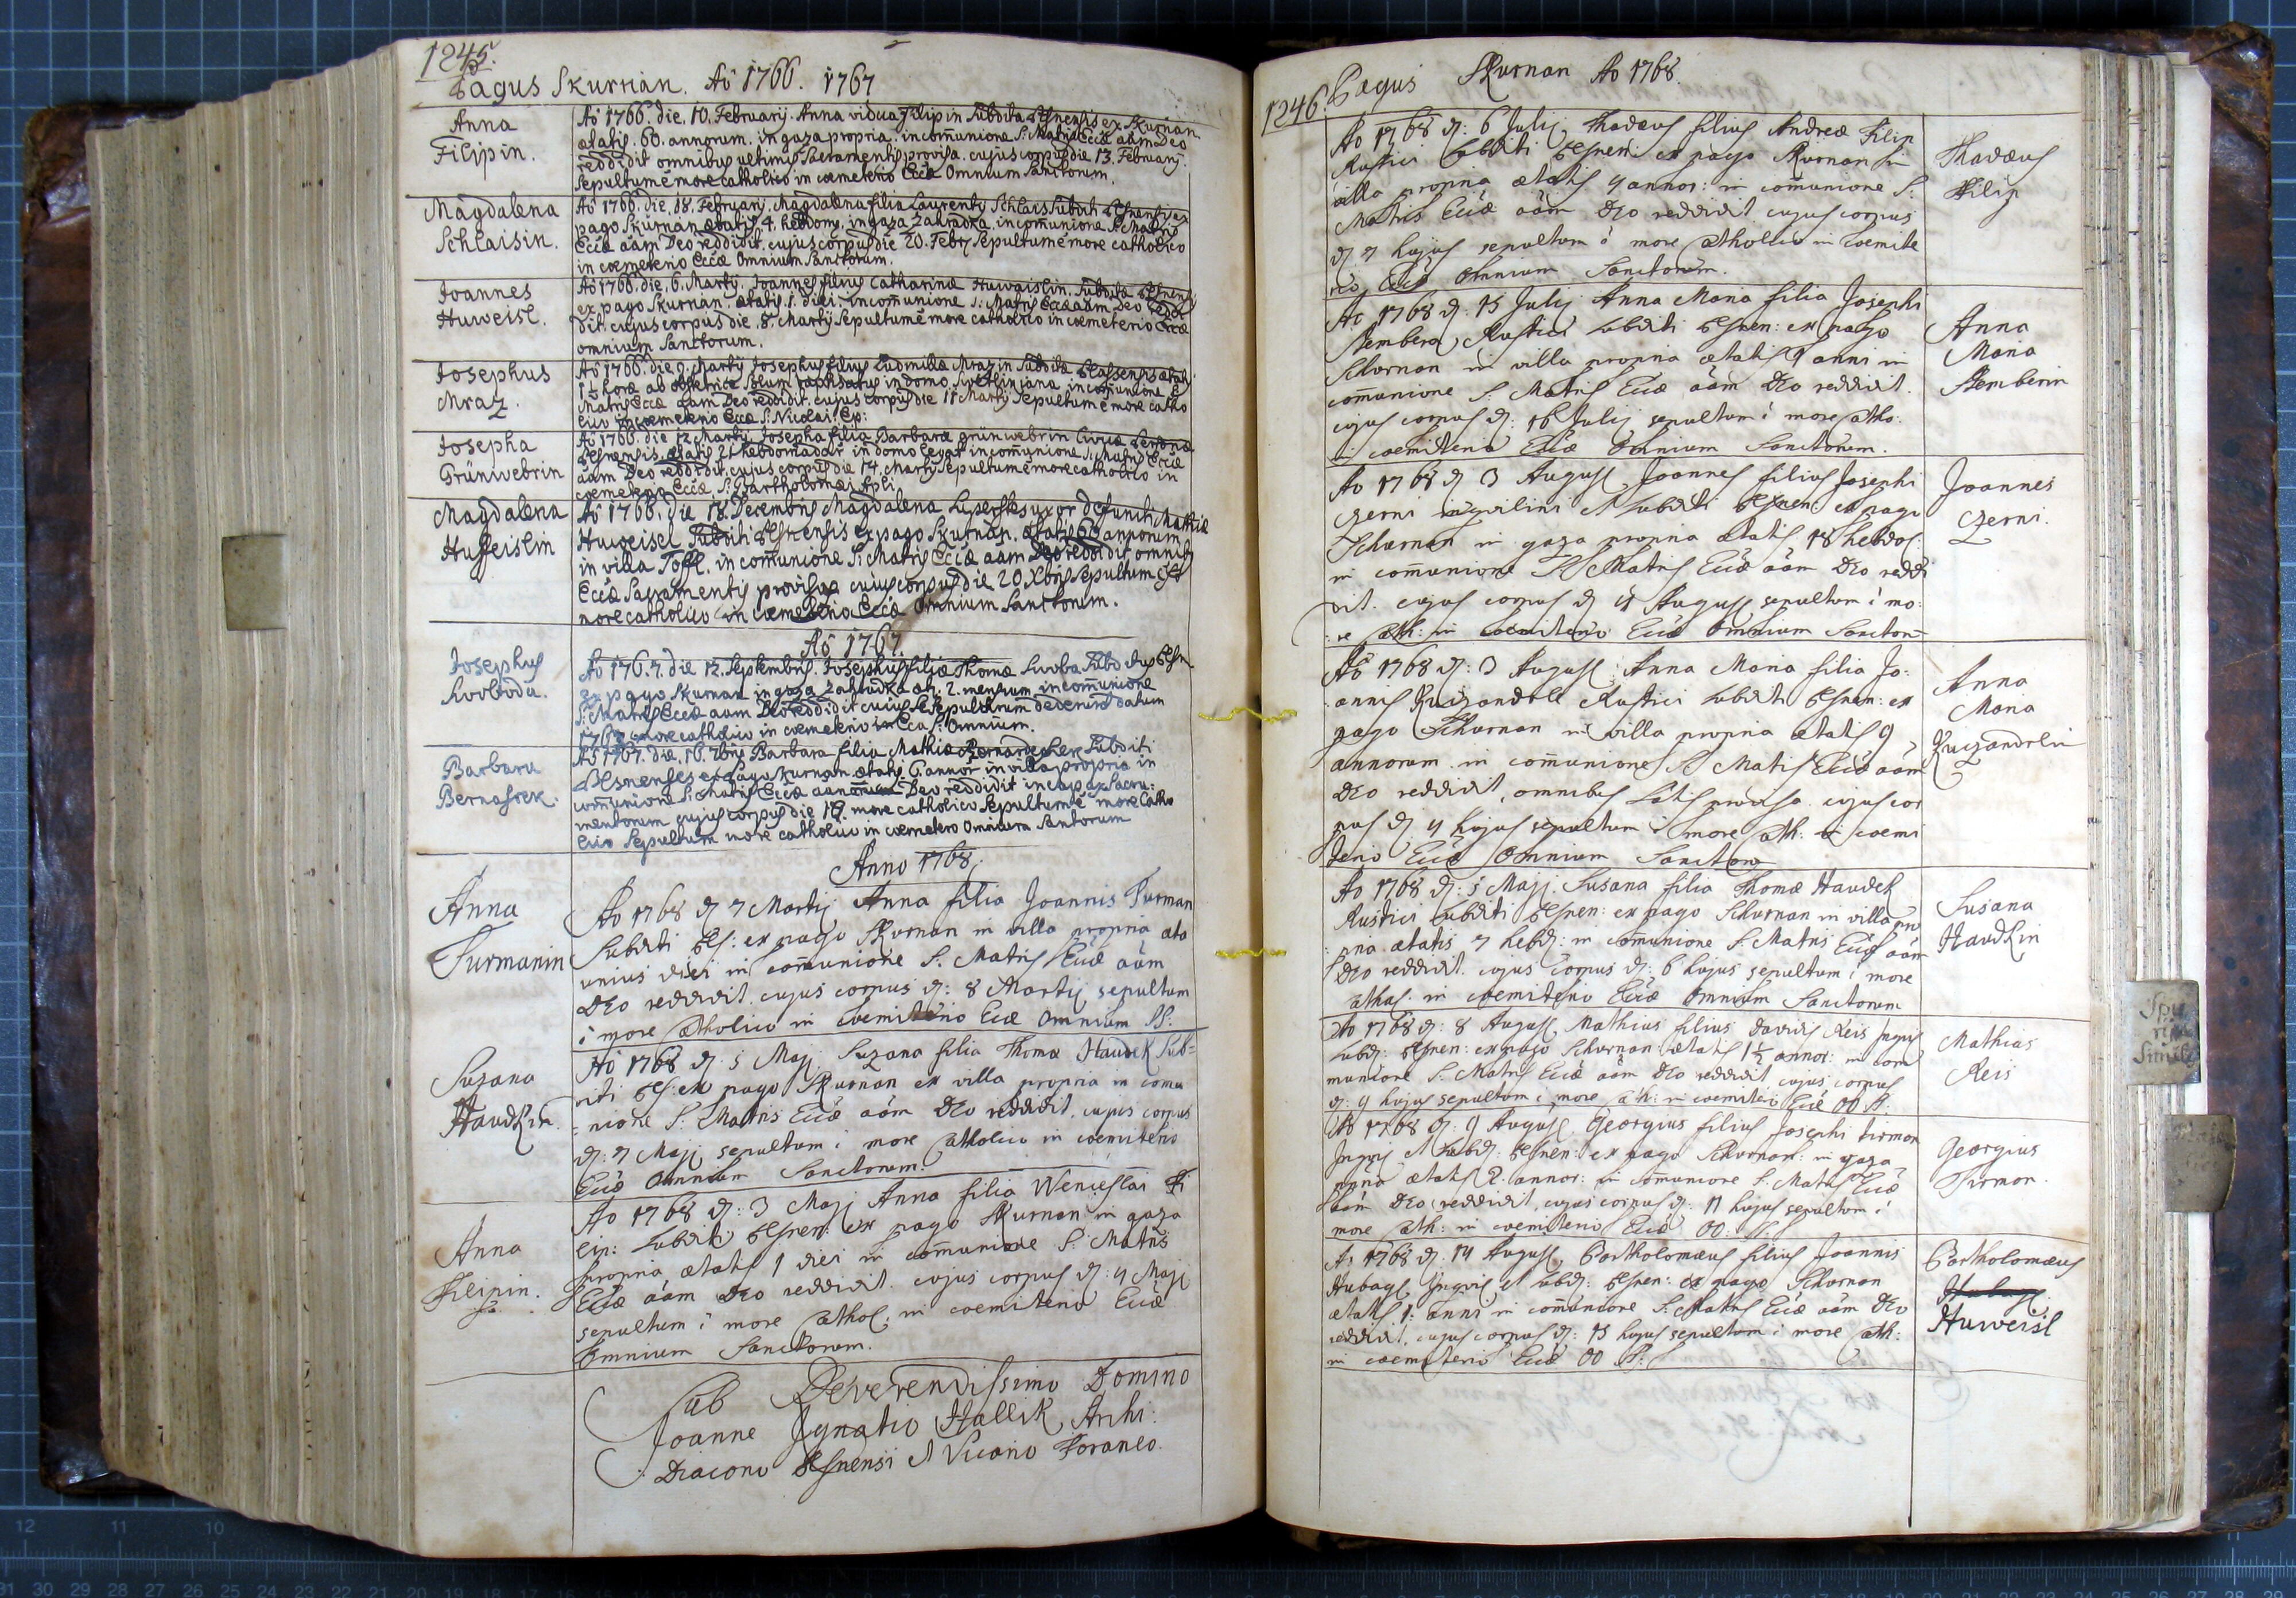 1245.
Pagus Skurnan. Aõ 1766. 1767
Anna
Filipin.
Aõ 1766. die. 10. Februarij. Anna vidua Filipin Subdita Plsnensis ex Skurnan
ætatis. 60. annorum. in gaza propria. in comunione S. Matris Ecciæ aãm Deo
reddidit omnibus ultimis Sacramentis provisa. cujus corpus die 13. Februarij.
Sepultum ẽ more catholico in cœmeterio Ecciæ Omnium Sanctorum.
Magdalena
Schlaisin.
Aõ 1766. die. 18. Februarij. Magdalena filia Laurentij Schlais Subditi Plsnensis ex
pago Skurnan ætatis. 4. hebdom. in gaza Zahradka. in comunione S. Matris
Ecciæ aãm Deo reddidit. cujus corpus die 20. Febr. Sepultum ẽ more catholico
in cœmeterio Ecciæ Omnium Sanctorum.
Joannes
Huweisl.
Aõ 1766. die. 6. Martij. Joannes filius Catharinæ Huwaislin. Subdita Plsnens
ex pago Skurnan. ætatis. 1. diei. in comunione S. Matris Ecciæ aãm Deo reddi
dit. cujus corpus die. 8. Martij Sepultum ẽ more catholico in cœmeterio Ecciæ
omnium Sanctorum.
Josephus
Mraz.
Aõ 1766. die 9. Martij Josephus filius Ludmilla Mrazin Subdita
1½ horæ ab obstetrice in domo in comunione S.
Matris Ecciæ aãm Deo reddidit. cujus corpus die 11 Martij Sepultum ẽ more catho
lico in cœmeterio Ecciæ S. Nicolai Ep:
Josepha
Grünwebrin
Aõ 1766. die 12 Martij Josepha filia Barbara grünwebrin
Plsnensis. ætatis 21 hebdomadar in domo in comunione S. Matris Ecciæ
aãm Deo reddidit. cujus corpus die 14. Martij Sepultum ẽ more catholico in
cœmeterio Ecciæ. S. Bartholomæi Apli.
Magdalena
Hufseislin
Aõ 1766. die 18. Decembris Magdalena Superstes uxor defuncti Mathiæ
Huweisel Subditi Plsnensis ex pago Skurnan. ætatis 60 annorum
in villa Toffl. in comunione S. Matris Ecciæ aãm Deo reddidit omnib
Ecciæ Sacramentis provisa cujus corpus die 20 Xbris Sepultum est
more catholico in cœmeterio Ecciæ Omnium Sanctorum.
Aõ 1767.
Josephus
Swoboda.
Aõ 1767. die 12. Septembris. Josephus filius Thomæ Swoba Subdi
ex pago Skurnan in gaza Zahradka æt. 2. mensium in comunione
S. Matris Ecciæ aãm Deo reddidit
1767 more catholico in cœmeterio Ecciæ S. Omnium.
Barbara
Bernaschek.
Aõ 1767. die. 16. Barbara filia Mathiæ Bernaschek Subditi
Plsnenses ex Pago Skurnan. ætatis 6. annor in villa propria in
comunione S. Matris Ecciæ aãm Deo reddidit incapax Sacra:
mentorum cujus corpus die 18. more catholico Sepultum ẽ more Catho
lico Sepultum more catholico in cœmetero Omnium Santorum
Anno 1768.
Anna
Furmanin
Ao 1768 d. 7 Martij Anna filia Joannis Furman
Subditi Pls: ex pago Skurnan in villa propria æta
unius diei in comunione S. Matris Eciæ aãm
DEo reddidit. cujus corpus d: 8 Martij sepultum
i more catholico in coemiterio Eciæ Omnium SS:
Suzana
Haudkin.
Ao 1768 d. 5 Maji Suzana filia Thomæ Haudek Sub=
diti Pls: ex pago Skurnan ex villa propria in comu
=nione S: Matris Eciæ aãm DEo reddidit, cujus corpus
d: 7 Maji sepultum i more catholico in coemiterio
Eciæ Omnium Sanctorum.
Anna
Filipin.
Ao 1768 d: 3 Maji Anna filia Wenceslai Fi
lip: subditi Plsnen: ex pago Skurnan in gaza
propria ætatis 1 diei in comunione S: Matris
Eciæ aãm DEo reddidit. cujus corpus d: 4 Maji
sepultum i more cathol: in coemiterio Eciæ
Omnium Sanctorum.
Sub Reverendissimo Domino
Joanne Ignatio Hallik Archi:
Diacono Plsnensi et Vicario Foraneo.
1246. Pagus Skurnan Ao 1768.
Ao 1768 d: 6 Julij Thadæus filius Andreæ Filip
Rustici subditi Plsnen: ex pago Skurnan in
villa propria ætatis 4 annor: in comunione S:
Matris Eciæ aãm DEo reddidit cujus corpus
d 7 hujus sepultum i more catholico in coemite
rio Eciæ Omnium Sanctorum.
Thadæus
Filip
Ao 1768 d: 15 Julij Anna Maria filia Josephi
Stembera Rustici subditi Plsnen: ex pago
Schurnan in villa propria ætatis 1 anni in
comunione S. Matris Eciæ aãm DEo reddidit.
cujus corpus d: 16 Julij sepultum i more catho:
coemiterio Eciæ Omnium Sanctorum.
Anna
Maria
Stemberin
Ao 1768 d 3 August Joannes filius Josephi
Czerni inquilini et subditi Plsnen: ex pago
Schurnan in gaza propria ætatis 18 hebdo:
in comunione S Matris Eciæ aãm DEo reddi
dit. cujus corpus d 4 August sepultum i mo:
:re cath: in coemiterio Eciæ Omnium Sanctorũ
Joannes
Czerni.
Ao 1768 d: 3 August Anna Maria filia Jo:
:annis Rustici subditi Plsnen: ex
pago Schurnan in villa propria ætatis 9
annorum in comunione S Matis Eciæ aãm
DEo reddidit, omnibus provisa. cujus cor
pus d 4 hujus sepultum i more cath: in coemi
terio Eciæ Omnium Sanctorũ
Anna
Maria
Ao 1768 d: 5 Maji. Susana filia Thomæ Haudek
Rustici subditi Plsnen: ex pago Schurnan in villa pro
:pria ætatis 7 hebd: in comunione S. Matris Eciæ aãm
DEo reddidit. cujus corpus d: 6 hujus sepultum i more
cathol. in coemiterio Eciæ Omnium Sanctorum
Susana
Haudkin
Ao 1768 d: 8 August Mathias filius Davidis Reis
subd: Plsnen: ex pago Schurnan: ætatis 1½ annor: in com
munione S. Matris Eciæ aãm DEo reddidit cujus corpus
d: 9 hujus sepultum i more cath: in coemiterio Eciæ OO SS.
Mathias
Reis
Ao 1768 d: 9 August. Georgius filius Josephi Firmon
et subd: Plsnen: ex pago Schurnan: in gaza
ppria ætatis 2. annor: in comunione S. Matris Eciæ
aãm DEo reddidit, cujus corpus d: 11 hujus sepultum i
more cath: in coemiterio Eciæ OO: SS:
Georgius
Firmon.
Ao 1768 d: 14 August Bartholomæus filius Joannis
et subd: Plsnen: ex pago Schurnan
ætatis 1: anni in comunione S. Matris Eciæ aãm DEo
reddidit, cujus corpus d: 15 hujus sepultum i more cath:
in coemiterio Eciæ OO SS:
Bartholomæus
Huweisl